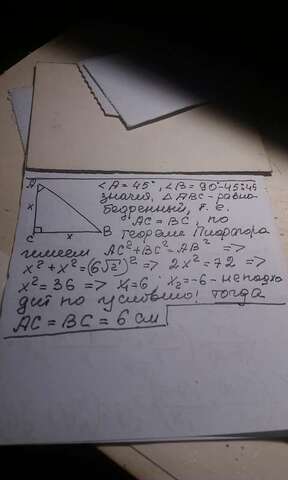 A
x
C x B
∠A = 45°, ∠B = 90°-45=45
значит, △ABC - равно-
бедренный, т. е.
AC = BC, по
теореме Пифагора
имеем AC²+BC²=AB² =>
x²+x²=(6√2)² => 2x²=72 =>
x²=36 => x₁=6; x₂=-6 - не подхо
дит по условию! тогда
AC = BC = 6 см